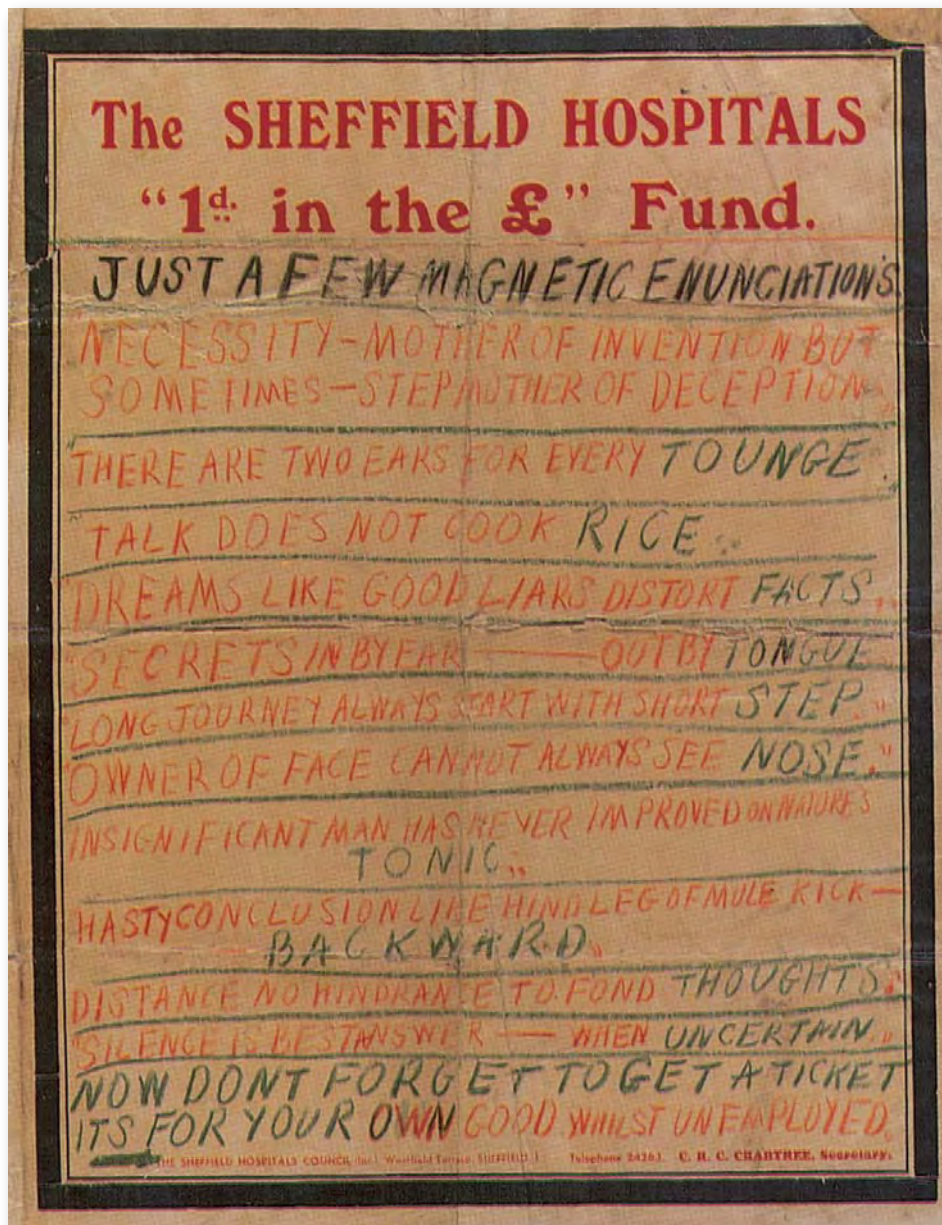 The SHEFFIELD HOSPITALS
"1d. in the £" Fund.
JUST A FEW MAGNETIC ENUNCIATION'S
"NECESSITY-MOTHER OF INVENTION BUT
SOMETIMES-STEPMOTHER OF DECEPTION"
"THERE ARE TWO EARS FOR EVERY TOUNGE."
"TALK DOES NOT COOK RICE."
"DREAMS LIKE GOOD LIARS DISTORT FACTS."
"SECRETS IN BY EAR — OUT BY TONGUE"
"LONG JOURNEY ALWAYS START WITH SHORT STEP."
"OWNER OF FACE CANNOT ALWAYS SEE NOSE."
INSIGNIFICANT MAN HAS NEVER IMPROVED ON NATURES
TONIC."
HASTY CONCLUSION LIKE HIND LEG OF MULE KICK—
BACKWARD."
DISTANCE NO HINDRANCE TO FOND THOUGHTS."
"SILENCE IS BEST ANSWER — WHEN UNCERTAIN."
NOW DONT FORGET TO GET A TICKET
ITS FOR YOUR OWN GOOD WHILST UNEMPLOYED.
THE SHEFFIELD HOSPITALS COUNCIL (Inc.), Westfield Terrace, SHEFFIELD 1. Telephone 24261. C. R. C. CRABTREE, Secretary.